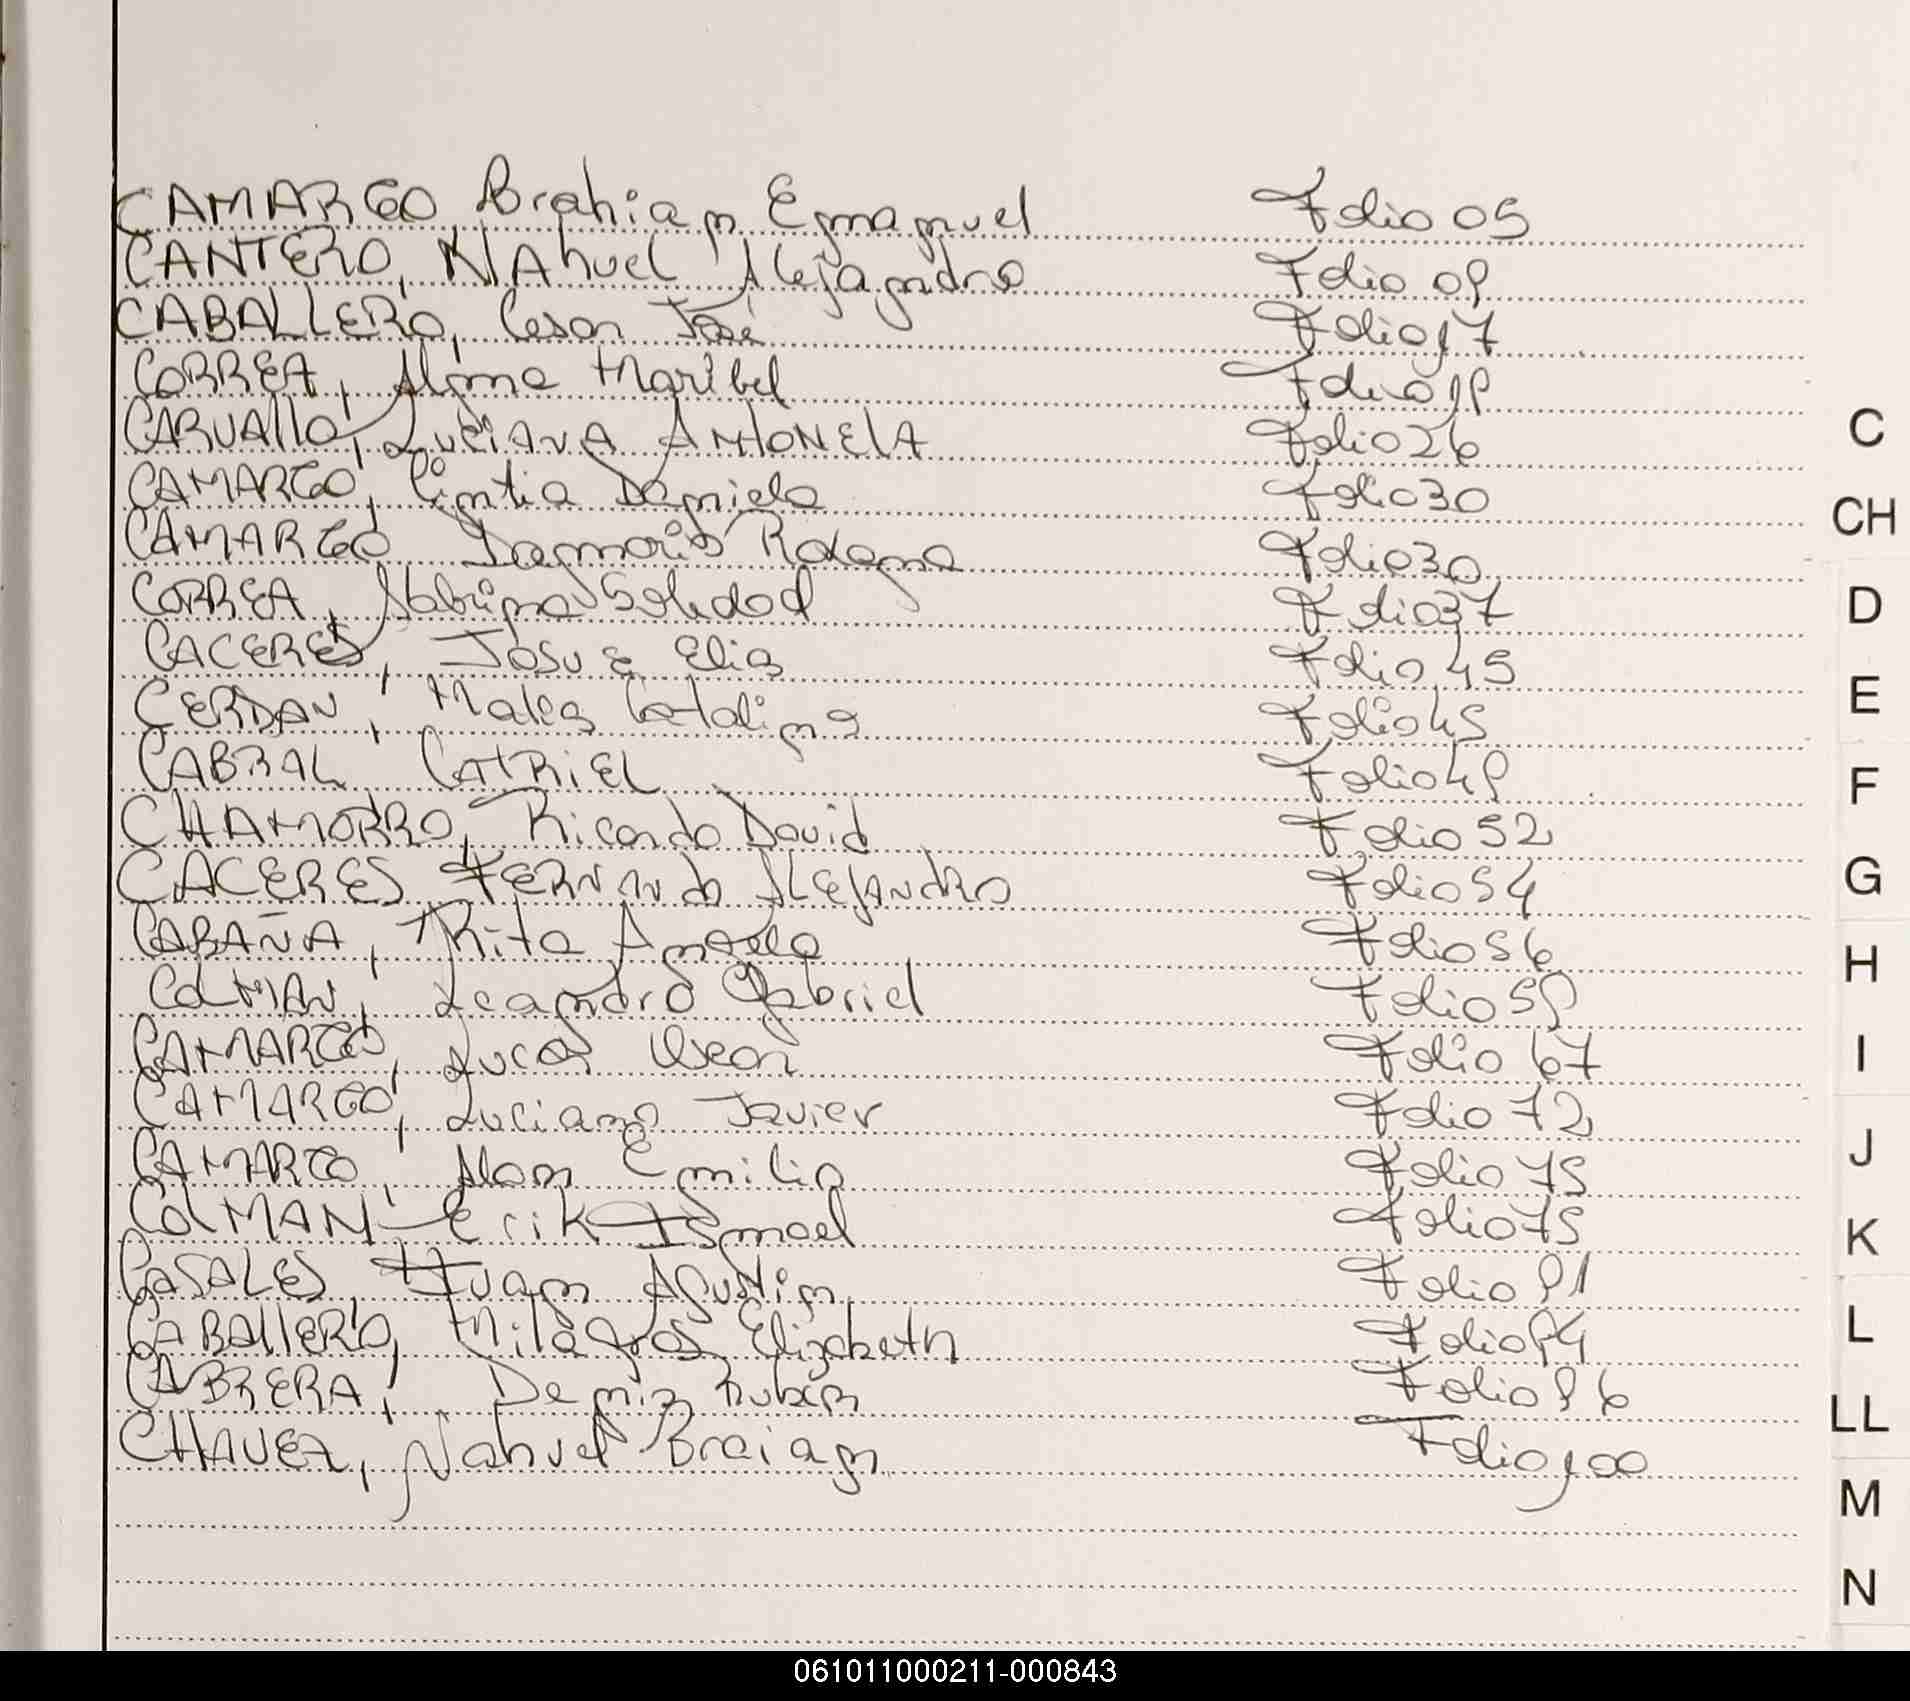 CAMARGO Brahian Emanuel Folio 05
CANTERO, NAhuel Alejandro Folio 08
CABALLERO, Cesar José Folio 17
CORREA, Alma Maribel Folio 18
CARVAllO, LUCIANA ANtONElA Folio 26
CAMARGO, Cintia Daniela Folio 30
CAMARGO Damaris Rodana Folio 30
CORREA, Sabrina Soledad Folio 37
CACERES, Josue Elias Folio 45
CERDAN, Malea Catalina Folio 45
CABRAL CATRIEL Folio 48
CHAMORRO, Ricardo David Folio 52
CACERES, FERNANdo AlEjANdRO Folio 54
CABAÑA, Rita Angela Folio 56
COLMAN, Leandro Gabriel Folio 58
CAMARGO, Lucas Uscar Folio 67
CAMARGO, Luciano Javier Folio 72
CAMARGO, Alan Emilio Folio 75
COLMAN Erik Ismael Folio 75
CASALES, Juan Agustin Folio 81
CABAllERO, Milagros Elizabeth Folio 84
CABRERA, Denis Ruben Folio 86
CHAVEZ, Nahuel Braian Folio 100
C
CH
D
E
F
G
H
I
J
K
L
LL
M
N
061011000211-000843